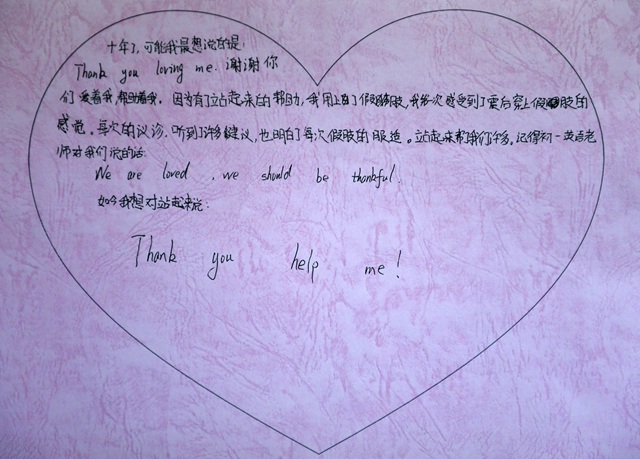 十年了,可能我最想说的是:
Thank you loving me. 谢谢你
们 爱着我,帮助着我。因为有了站起来的帮助,我用上了假肢,我每次感受到了震后穿上假肢的
感觉。每次的义诊,听到了许多建议,也明白了每次假肢的服适。站起来帮了我们许多。记得初一英语老
师对我们说的话:
We are loved , we should be thankful.
如今我想对站起来说:
Thank you help me!